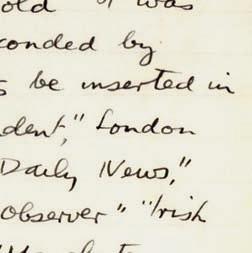 old it was
conded by
s be inserted in
dent," London
Daily News,"
Observer" "Irish